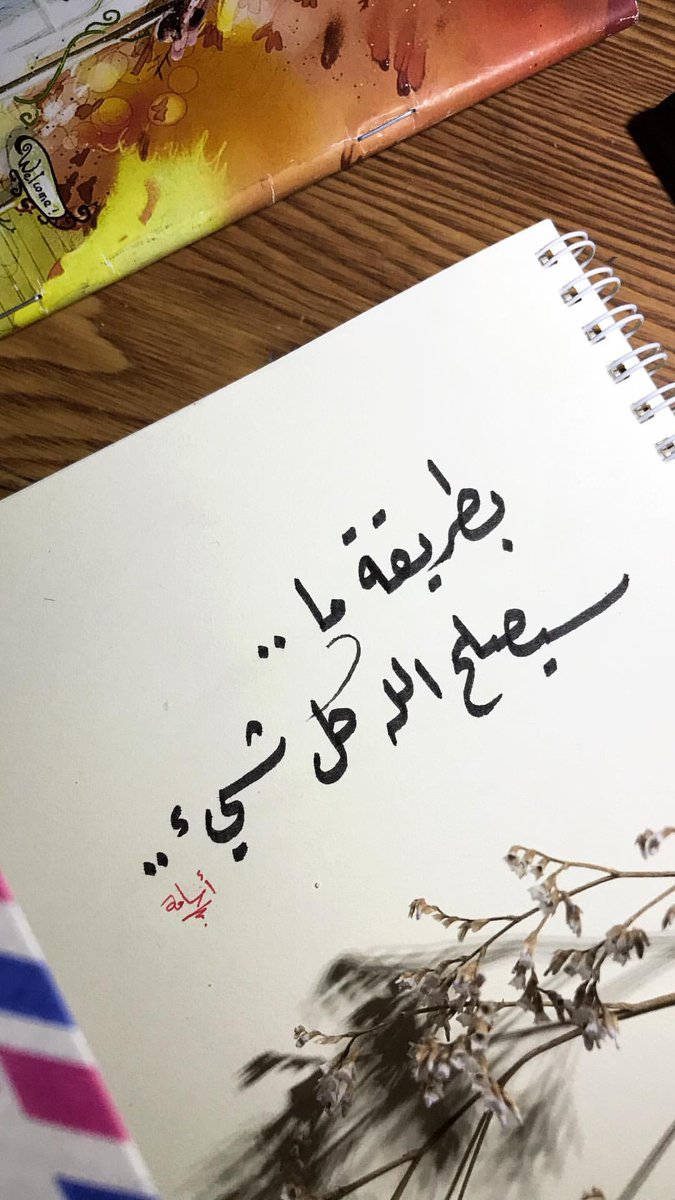 Welcome!
بطريقة ما ..
سيصلح الله كل شيء ..
أسامة